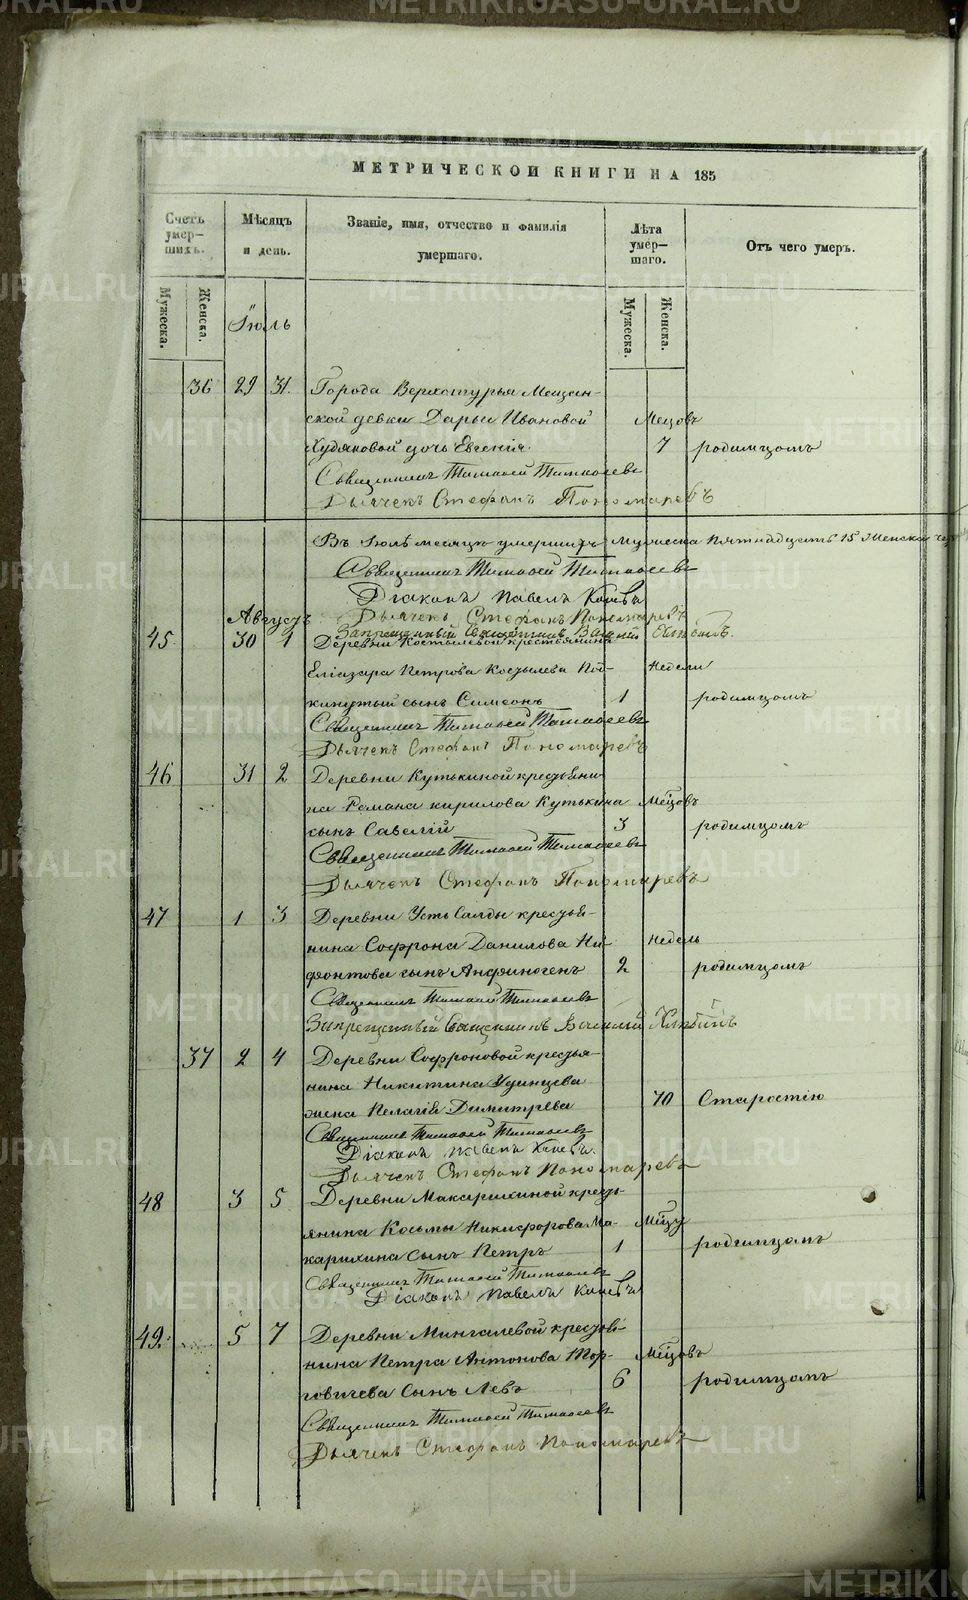 МЕТРИЧЕСКОЙ КНИГИ НА 185
Счетъ умер-шихъ.
Мѣсяцъ и день.
Званіе, имя, отчество и фамилія умершаго.
Лѣта умер-шаго.
Отъ чего умеръ.
Мужеска. Женска.
Мужеска. Женска.
Іюль
36 29 31. Города Верхотурья Мещан-
ской девки Дарьи Ивановой Мецовъ
Худяковой дочь Евгенія 7 родимцомъ
Священникъ Тимофей Тимофеевъ
Дьячекъ Стефанъ Пономаревъ
Въ Іюлѣ месяцѣ умершихъ Мужеска Пятнадцать 15 Женска
Священникъ Тимофей Тимофеевъ
Діаконъ Павелъ
Дьячекъ Стефанъ Пономаревъ
Августъ
Запрещенный Священникъ
45. 30 1 Деревни Костылевой крестьянина
Еліазара Петрова Костылева Под- Недели
кинутый сынъ Симеонъ 1 родимцомъ
Священникъ Тимофей Тимофеевъ
Дьячекъ Стефанъ Пономаревъ
46 31 2 Деревни Кутькиной крестьяни-
на Романа Кирилова Кутькина Мецовъ
сынъ Савелій 3 родимцомъ
Священникъ Тимофей Тимофеевъ
Дьячекъ Стефанъ Пономаревъ
47 1 3 Деревни Усть Салды крестья-
нина Софрона Данилова Ни- Недель
фонтова сынъ Анфиногенъ 2 родимцомъ
Священникъ Тимофей Тимофеевъ
Запрещенный Священникъ
37 2 4 Деревни Софроновой крестья-
нина Никитина Удинцева
жена Пелагія Димитрева 70 Старостію
Священникъ Тимофей Тимофеевъ
Діаконъ Павелъ
Дьячекъ Стефанъ Пономаревъ
48 3 5 Деревни Макарихиной кресть-
янина Косьмы Никифорова Ма- Мецу
карихина сынъ Петръ 1 родимцомъ
Священникъ Тимофей Тимофеевъ
Діаконъ Павелъ
49. 5 7 Деревни Мингалевой крестья-
нина Петра Антонова Тор- Мецовъ
говичева сынъ Левъ 6 родимцомъ
Священникъ Тимофей Тимофеевъ
Дьячекъ Стефанъ Пономаревъ
METRIKI.GASO-URAL.RU